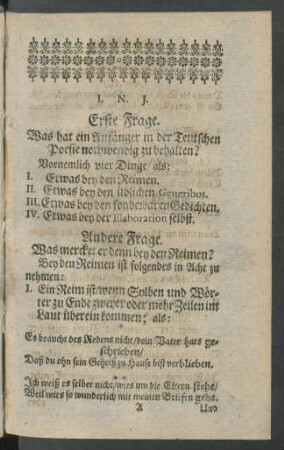 I. N. J.
Erste Frage.
Was hat ein Anfänger in der Teutschen
Poesie nothwendig zu behalten?
Vornemlich vier Dinge/ als:
I. Etwas bey den Reimen.
II. Etwas bey den üblichen Generibus.
III. Etwas bey den sonderbaren Gedichten.
IV. Etwas bey der Elaboration selbst.
Andere Frage.
Was mercket er denn bey den Reimen?
Bey den Reimen ist folgendes in Acht zu
nehmen:
I. Ein Reim ist/ wenn Sylben und Wör-
ter zu Ende zweyer oder mehr Zeilen im
Laut überein kommen; als:
Es braucht des Redens nicht/ dein Vater hats ge-
schrieben/
Daß du ohn sein Geheiß zu Hause bist verblieben.
Ich weiß es selber nicht/ wies um die Eltern stehe/
Weil mirs so wunderlich mit meinen Briefen gehe.
A Und